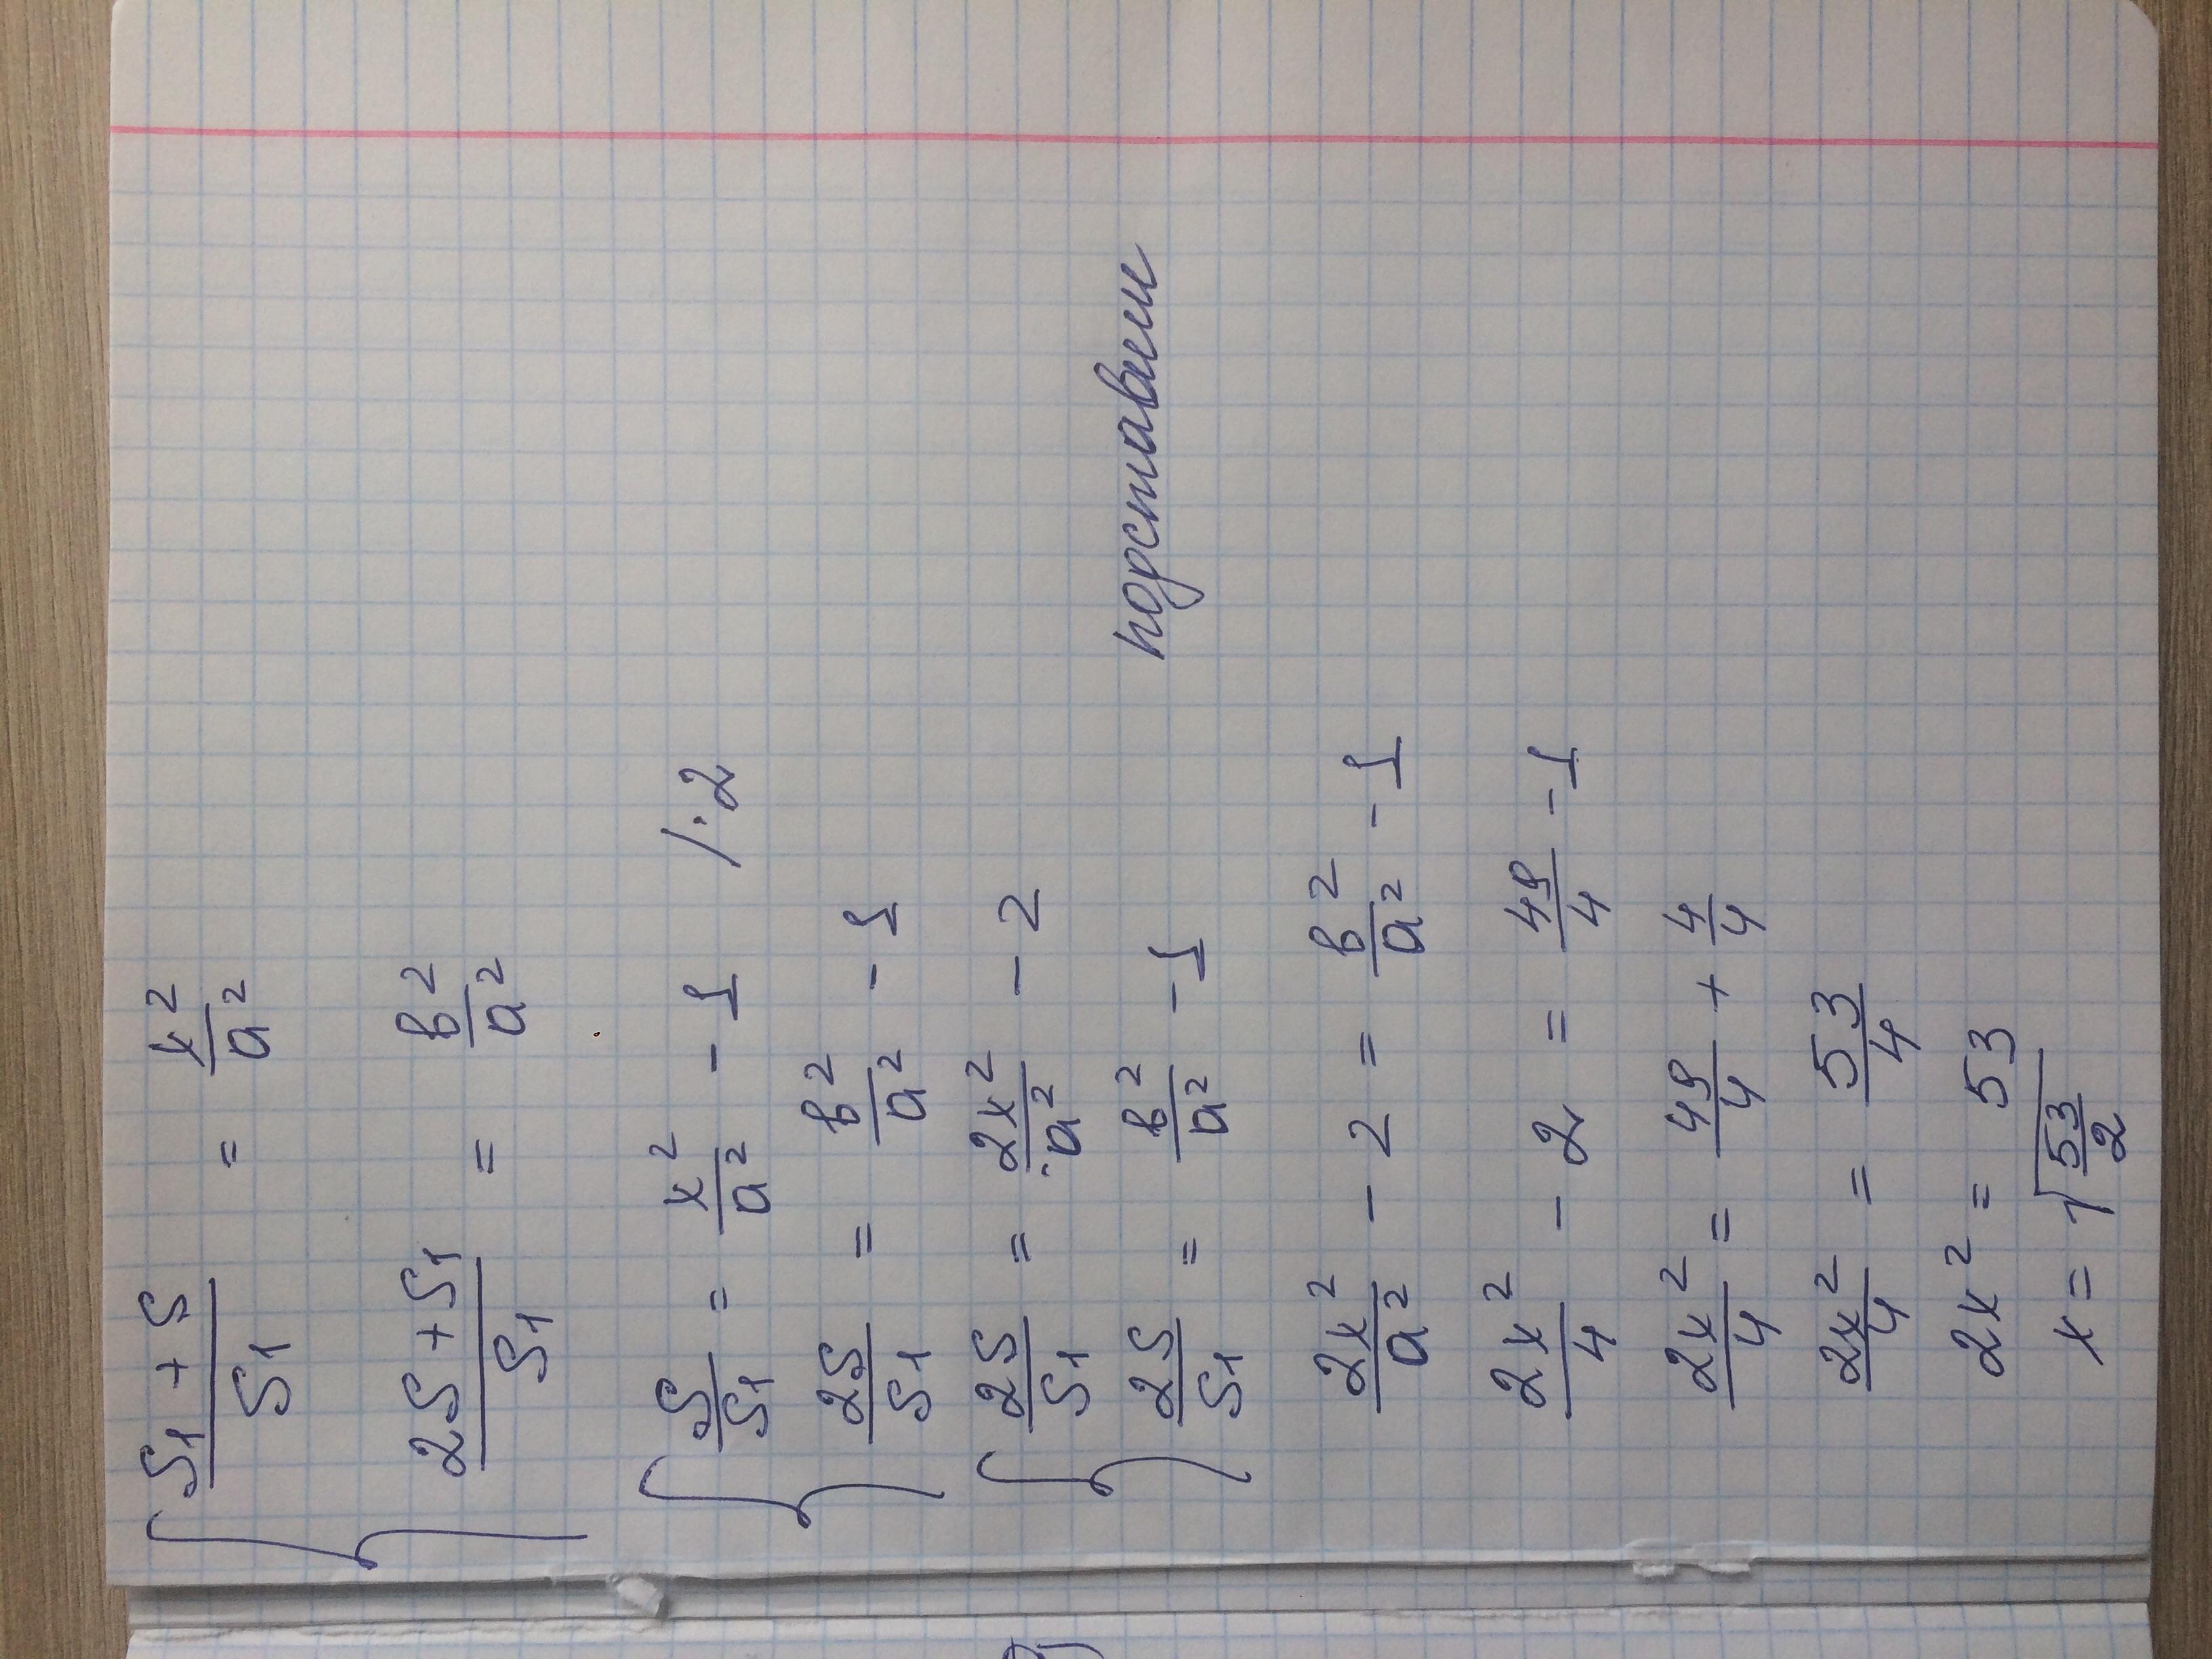 { (S₁ + S)/S₁ = x²/a²
(2S + S₁)/S₁ = b²/a²
{ S/S₁ = x²/a² - 1 /·2
2S/S₁ = b²/a² - 1
{ 2S/S₁ = 2x²/a² - 2
2S/S₁ = b²/a² - 1 подставим
2x²/a² - 2 = b²/a² - 1
2x²/4 - 2 = 49/4 - 1
2x²/4 = 49/4 + 4/4
2x²/4 = 53/4
2x² = 53
x = √(53/2)